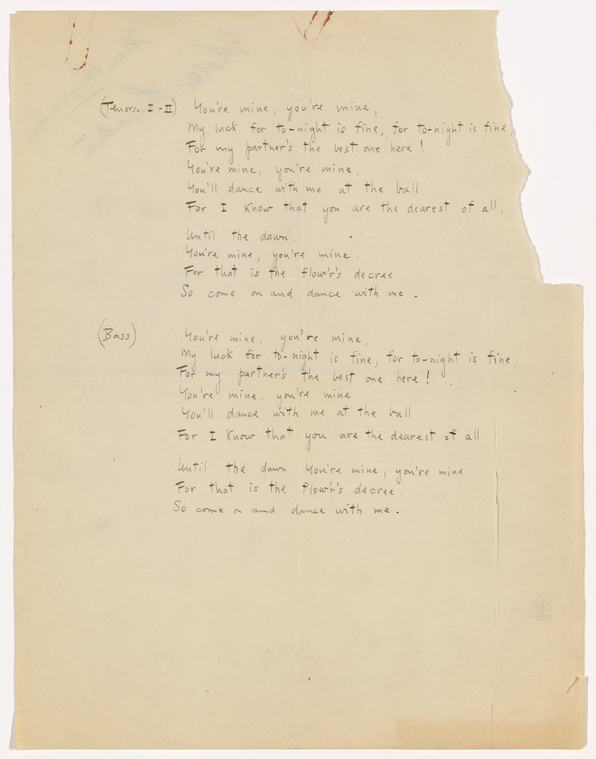 (Tenors. I - II) You're mine, you're mine,
My luck for to-night is fine, for to-night is fine,
For my partner's the best one here!
You're mine, you're mine,
You'll dance with me at the ball
For I know that you are the dearest of all,
Until the dawn.
You're mine, you're mine.
For that is the flow'r's decree
So come on and dance with me.
(Bass) You're mine, you're mine,
My luck for to-night is fine, for to-night is fine
For my partner's the best one here!
You're mine, you're mine
You'll dance with me at the ball
For I know that you are the dearest of all
Until the dawn You're mine, you're mine
For that is the flow'r's decree.
So come on and dance with me.